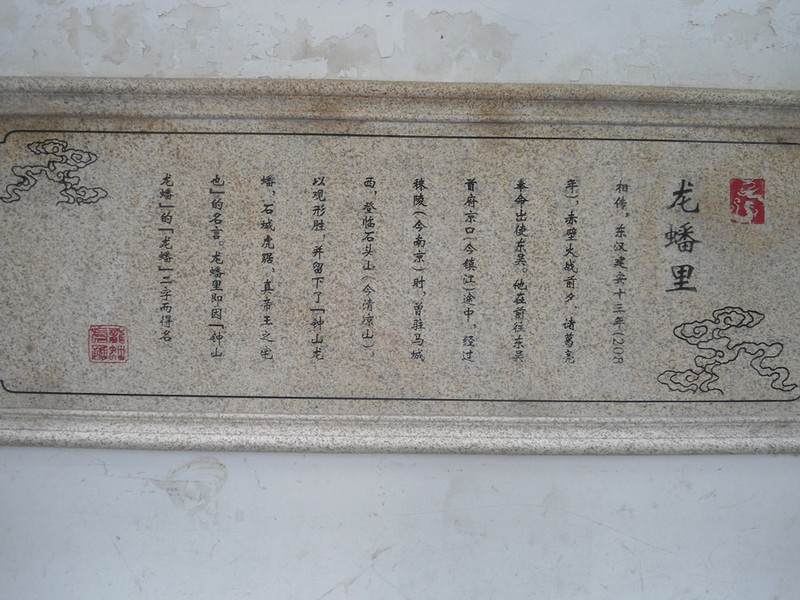 龙蟠里
相传，东汉建安十三年(208
年)，赤壁火战前夕，诸葛亮
奉命出使东吴。他在前往东吴
首府京口(今镇江)途中，经过
秣陵(今南京)时，曾驻马城
西，登临石头山(今清凉山)
以观形胜，并留下了“钟山龙
蟠，石城虎踞，真帝王之宅
也”的名言。龙蟠里即因“钟山
龙蟠”的“龙蟠”二字而得名